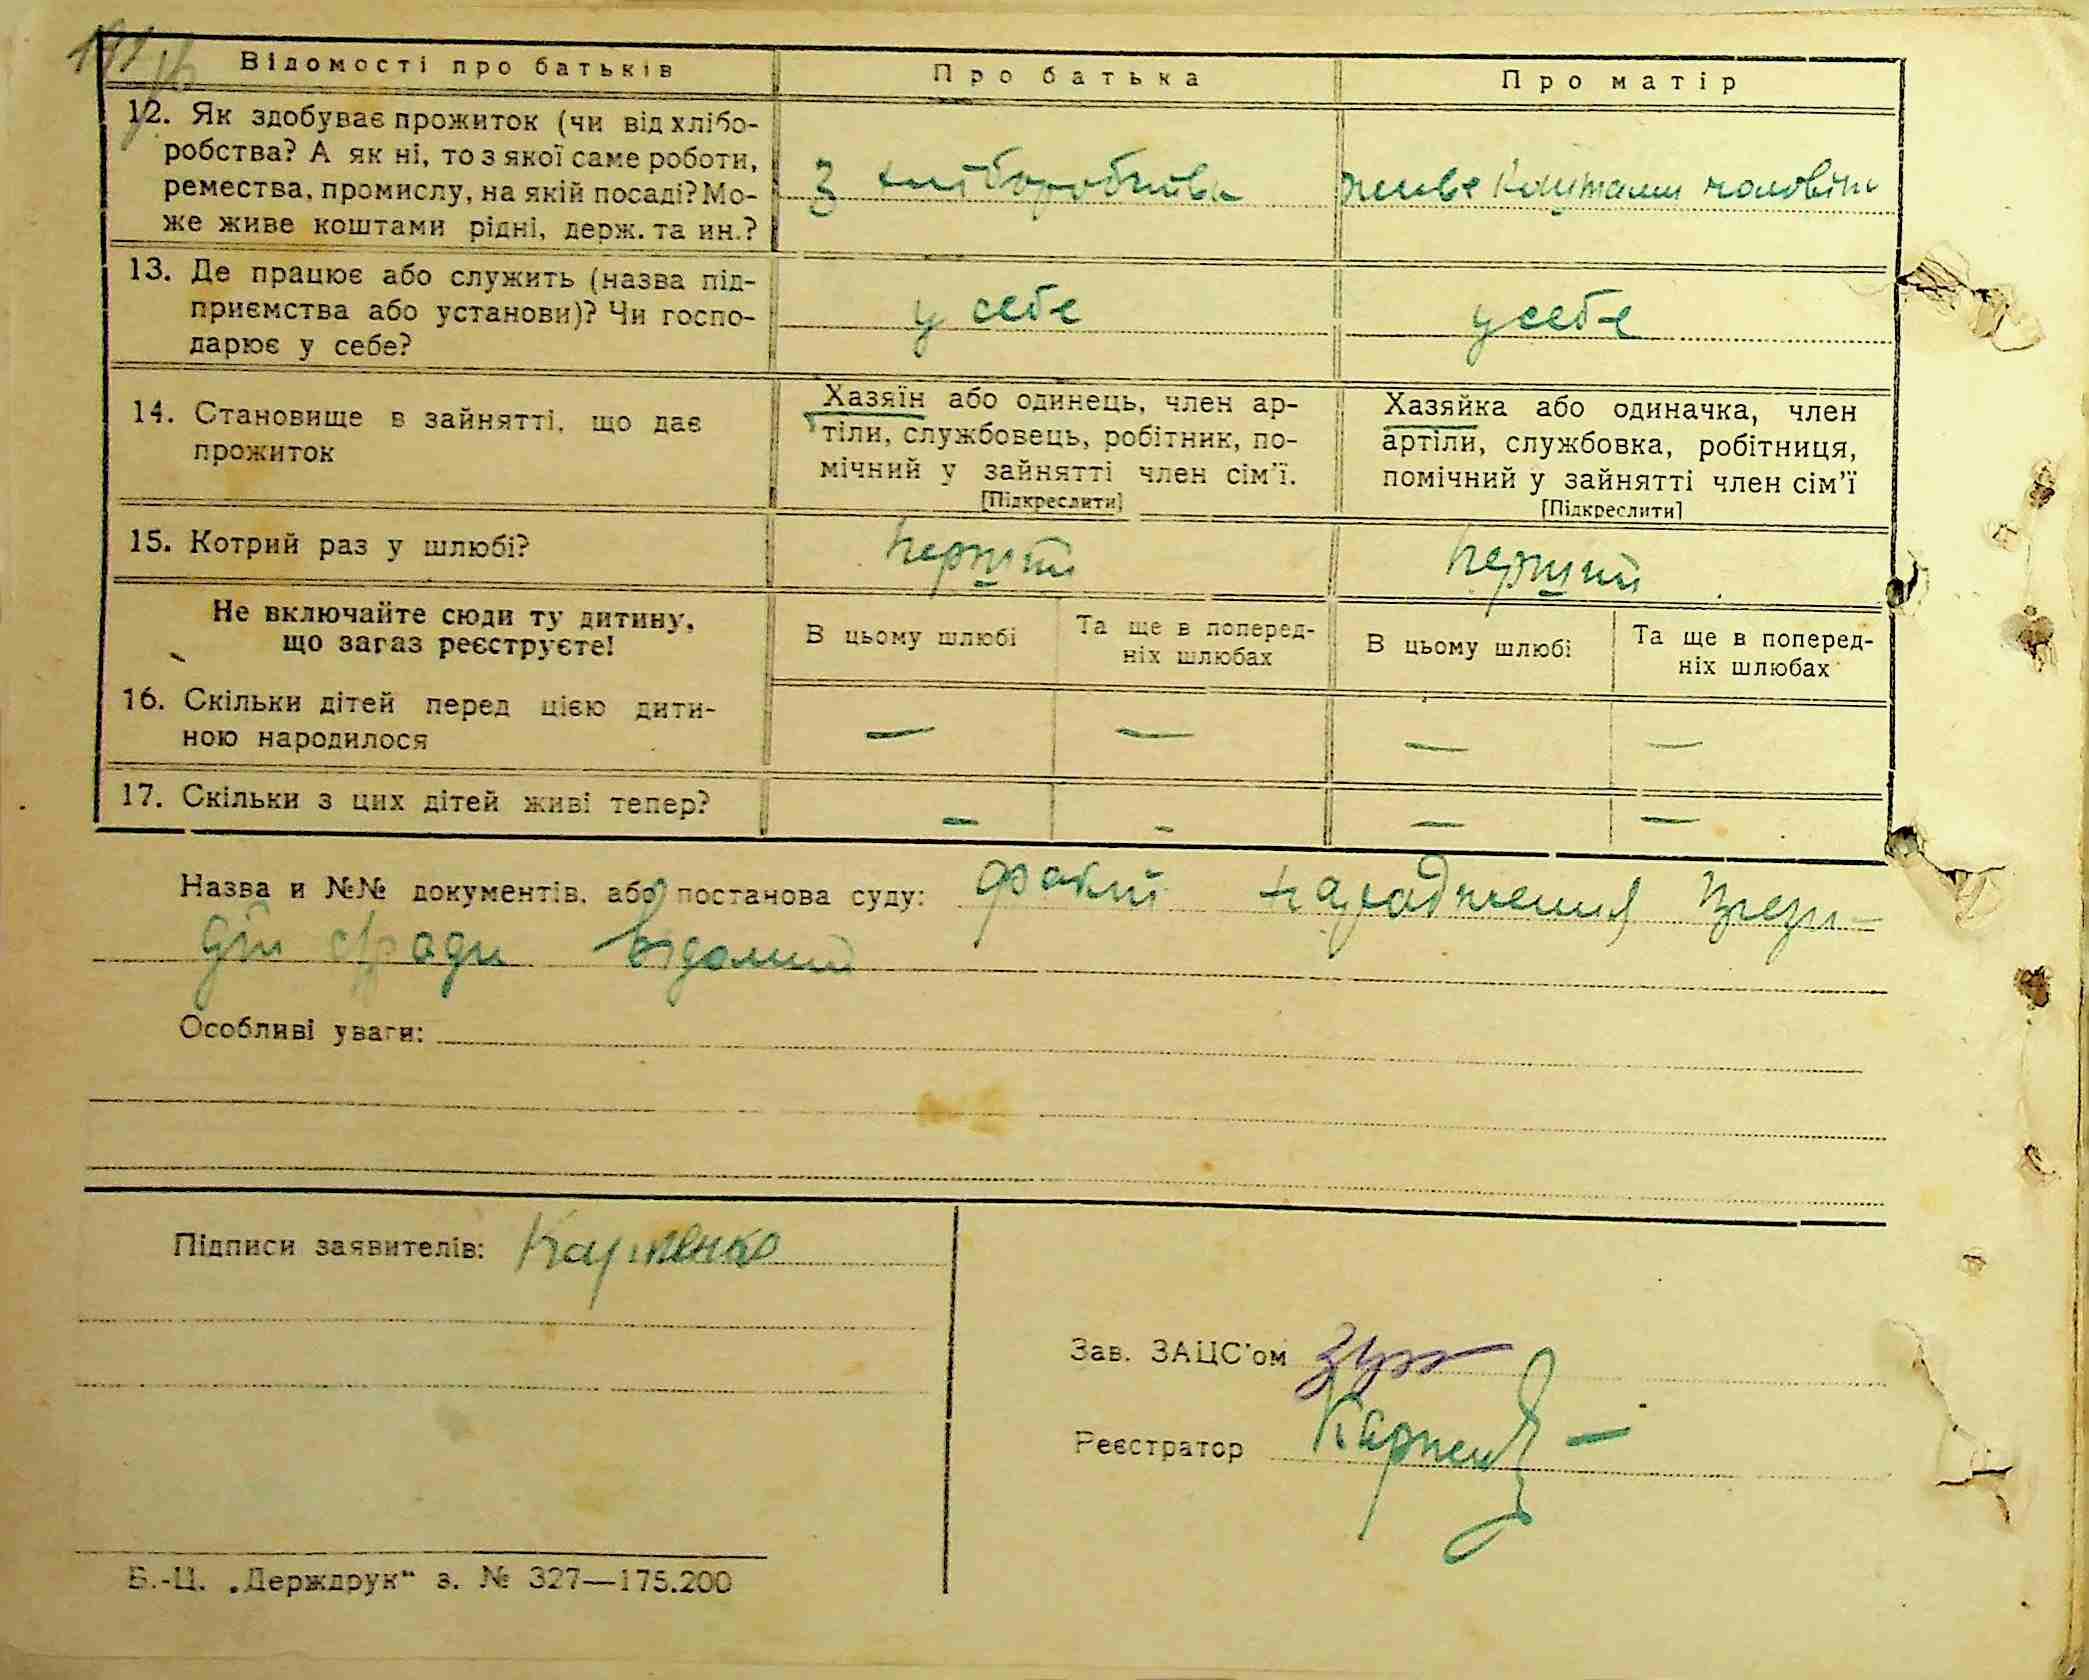 Відомості про батьків
Про батька
Про матір
12. Як здобуває прожиток (чи від хлібо-
робства? А як ні, то з якої саме роботи,
ремества, промислу, на якій посаді? Мо-
же живе коштами рідні, держ. та ин.?
З хліборобства
живе коштами чоловіка
13. Де працює або служить (назва під-
приємства або установи)? Чи госпо-
дарює у себе?
у себе
у себе
14. Становище в зайнятті, що дає
прожиток
Хазяїн або одинець, член ар-
тіли, службовець, робітник, по-
мічний у зайнятті член сім'ї.
[Підкреслити]
Хазяйка або одиначка, член
артіли, службовка, робітниця,
помічний у зайнятті член сім'ї
[Підкреслити]
15. Котрий раз у шлюбі?
перший
перший
Не включайте сюди ту дитину,
що зараз реєструєте!
В цьому шлюбі
Та ще в поперед-
ніх шлюбах
В цьому шлюбі
Та ще в поперед-
ніх шлюбах
16. Скільки дітей перед цією дити-
ною народилося
— — — —
17. Скільки з цих дітей живі тепер?
— — — —
Назва и №№ документів, або постанова суду: факт народження прези-
дії сради відомий
Особливі уваги:
Підписи заявителів:
Зав. ЗАЦС'ом
Реєстратор
Б.-Ц. „Держдрук" з. № 327—175.200